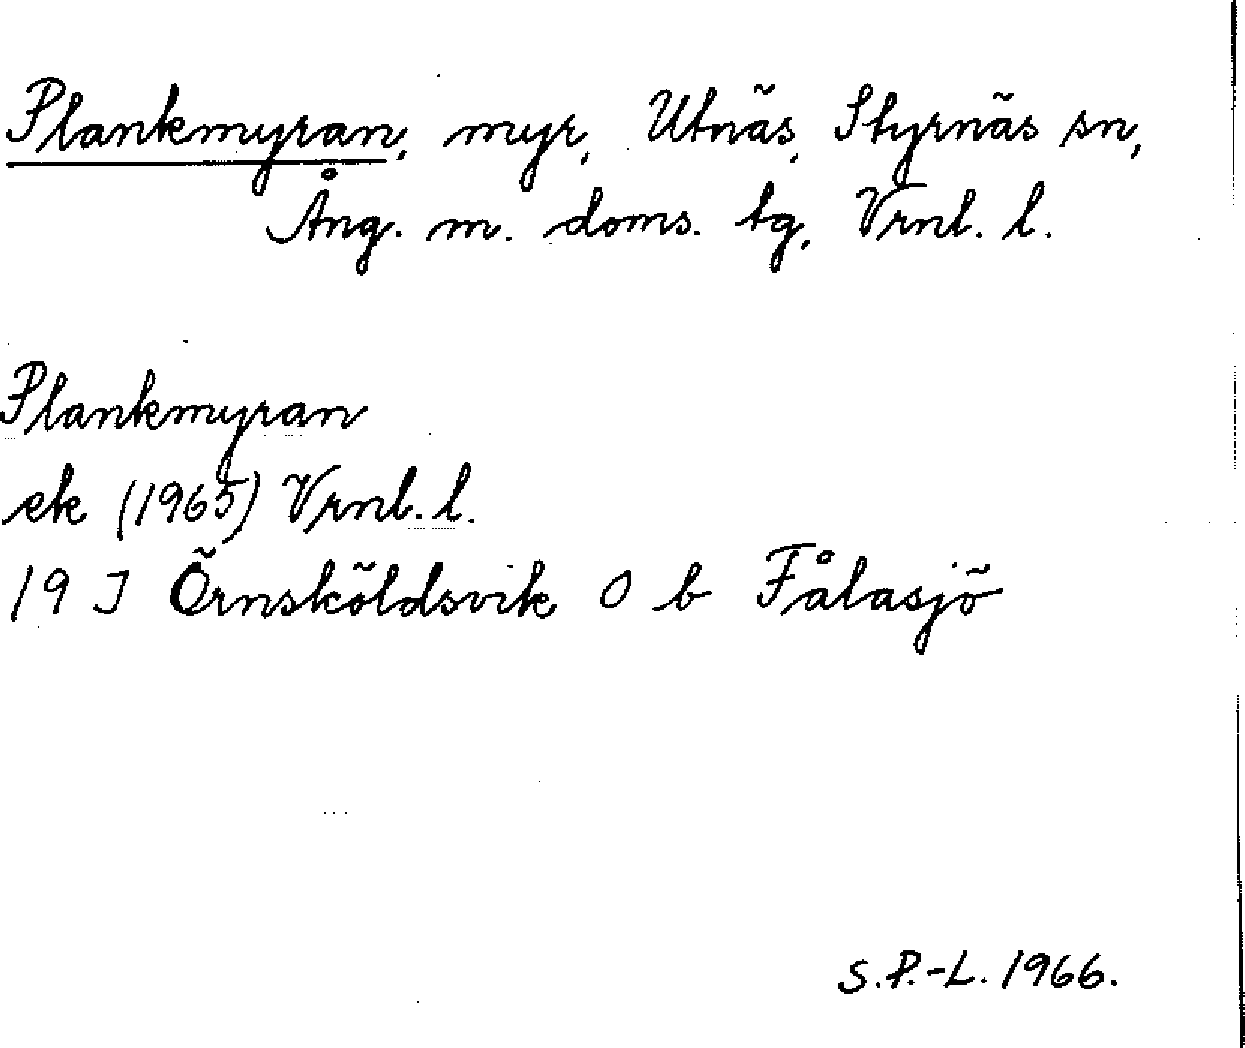 Plankmyran, myr, Utnäs, Styrnäs sn,
Ång. m. doms. tg, Vrnl. l.
Plankmyran
ek (1965) Vrnl. l.
19 J Örnsköldsvik O b Fålasjö
S.P.-L. 1966.